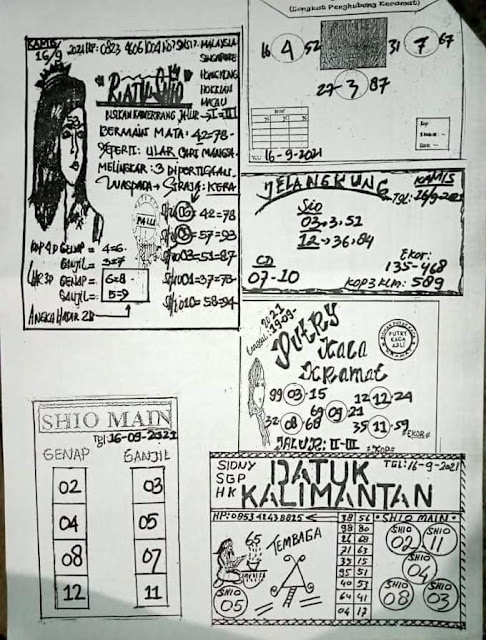 (Tongkat Penghubung Keramat)
16 4 52
31 7 67
27-3-87
16-9-2021
KAMIS
16/9
MALAYSIA
SINGAPORE
HONGKONG
HOKKIAN
MACAU
BERMAIN MATA: 42=78-
SEPERTI: ULAR CARI MANGSA-
MELINGKAR: 3 DIPERTIGAAN
WASPADA + SERAJA: KERA
53
PALU
42=78
57=93
03=51=87
01=37=73
10=58=94
KOP 4D GENAP = 4=6
GANJIL = 3=7
GENAP = 6=8
GANJIL = 5=9
ANGKA HADIR 2D
JELANGKUNG
KAMIS
TGL: 16/9-2021
Sio
03, 3, 51
12, 36, 84
CD
07-10
Ekor:
135-468
KOP 3 KLM: 589
PUTRY
KACA
KRAMAT
PUTRY
KACA
ASLI
99 03-15
12 12-24
69 09 21
32 08-68
35 11-59
EKOR
JALUR: II-III
SHIO MAIN
Tgl: 16-09-2021
GENAP GANJIL
02 03
04 05
08 07
12 11
SIDNY
SGP
HK
DATUK
KALIMANTAN
TGL: 16-9-2021
HP: 0853 4243 8825
65
TEMBAGA
SHIO
05
38 56
98 80
26 68
21 63
33 15
95 51
40 53
64 41
04 17
SHIO MAIN
SHIO
02
SHIO
11
SHIO
04
SHIO
08
SHIO
03